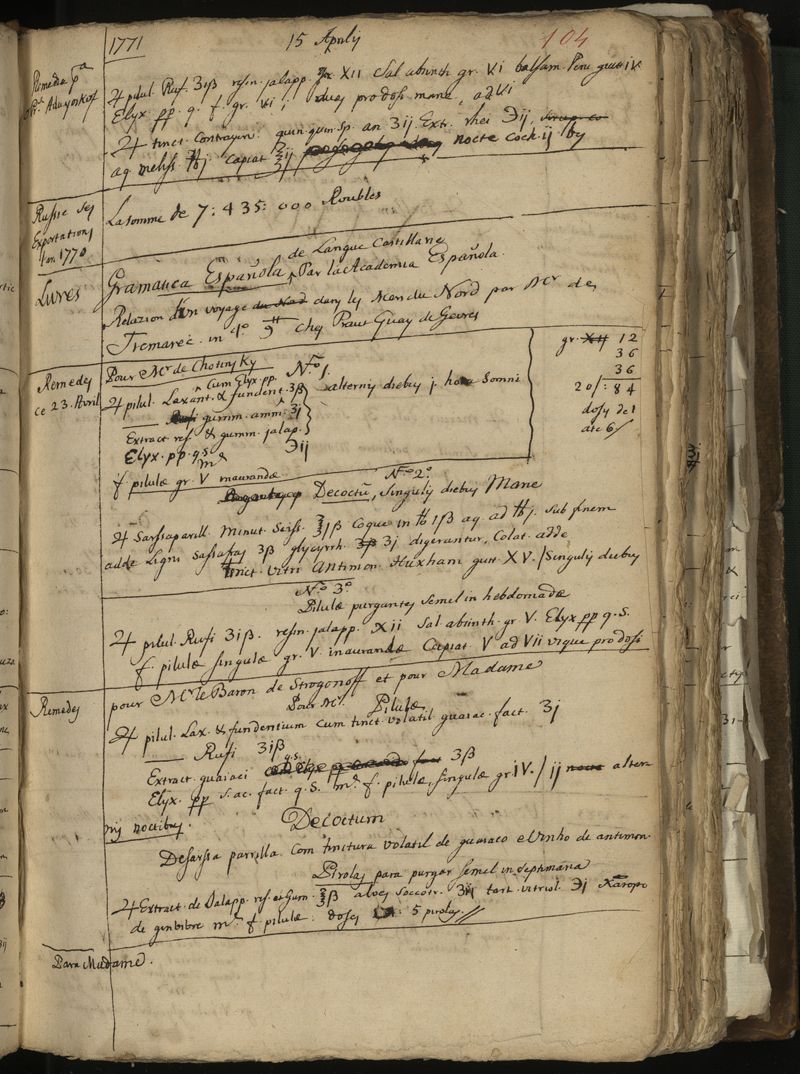 1771 15 Aprilij 104
Remedia pa
♃ pilul. Ruf. ʒiß resin. jalapp. gr XII Sal absinth gr. Vi balsam. Peru gutt iv
Elyx pp. q. f. gr. Vi; duas pro dosi mane, ad Vi
♃ tinct. Contrayerv. quinquin. sp. an ʒij. Extr. rhei ℈ij,
aq. meliss. ℔j. Capiat ℥ij nocte coch ij
Russie Ses
Exportations
l'an 1770
La somme de 7:435:000 Roubles
Livres
Gramatica Española de Langue Castillane Par la Academia Española.
Relazion d'un voyage dans les Mers du Nord par Mr de
Tremarec. in 4º 9tt Ches Praut Quay de Gevres
Remedes
ce 23. Avril
Pour Mr de Chotinsky
Nro 1.
♃ pilul. Laxant. & fundent. cum Elyx pp. ʒß
gumm. amm. ʒj
Extract res. & gumm. jalap.
Elyx. pp. q.s. ℈ij
alternis diebus j. hora Somni
gr. 12
36
36
20/: 84
dosis de 1
ate 6/
f pilulæ gr. V inaurandæ
Nro 2º
Decoctũ, Singulis diebus Mane
♃ Sarssaparill. Minut. Sciss. ℥jß Coque in ℔ 1ß aq ad ℔j. Sub finem
adde Ligni Sassafras ʒß glycyrrh. ʒj digerantur, Colat. adde
tinct. vitri Antimon. Huxham gutt. XV./Singulis diebus
Nro 3º
Pilulæ purgantes Semel in hebdomadæ
♃ pilul. Rufi ʒiß. resin. jalapp. Xij Sal absinth. gr V. Elyx pp q.S.
f. pilulæ singulæ gr. V. inaurandæ Capiat V ad Vii vique pro dosi
Remedes
pour Mr le Baron de Strogonoff et pour Madame
Pour Mr. Pilulæ
♃ pilul. Lax. & fundentium Cum tinct. volatil guaiac. fact. ʒj
Rufi ʒiß
Extract. guaiaci ʒß
Elyx. pp s. ac. fact. q. S. m. f. pilulæ, singulæ gr iV. / ij alter-
nis noctibus.
Decoctum
De sarssa parrilla Com tinctura volatil de guaiaco e Vinho de antimon.
Pirolas para purgar Semel in Septimana
♃ Extract. de Jalapp. res. et Gum. ʒß aloes soccotr. ʒij tart. vitriol. ℈j Xarope
de gingibre m. f. pilulæ: doses : 5 pirolas //
Para Madame.